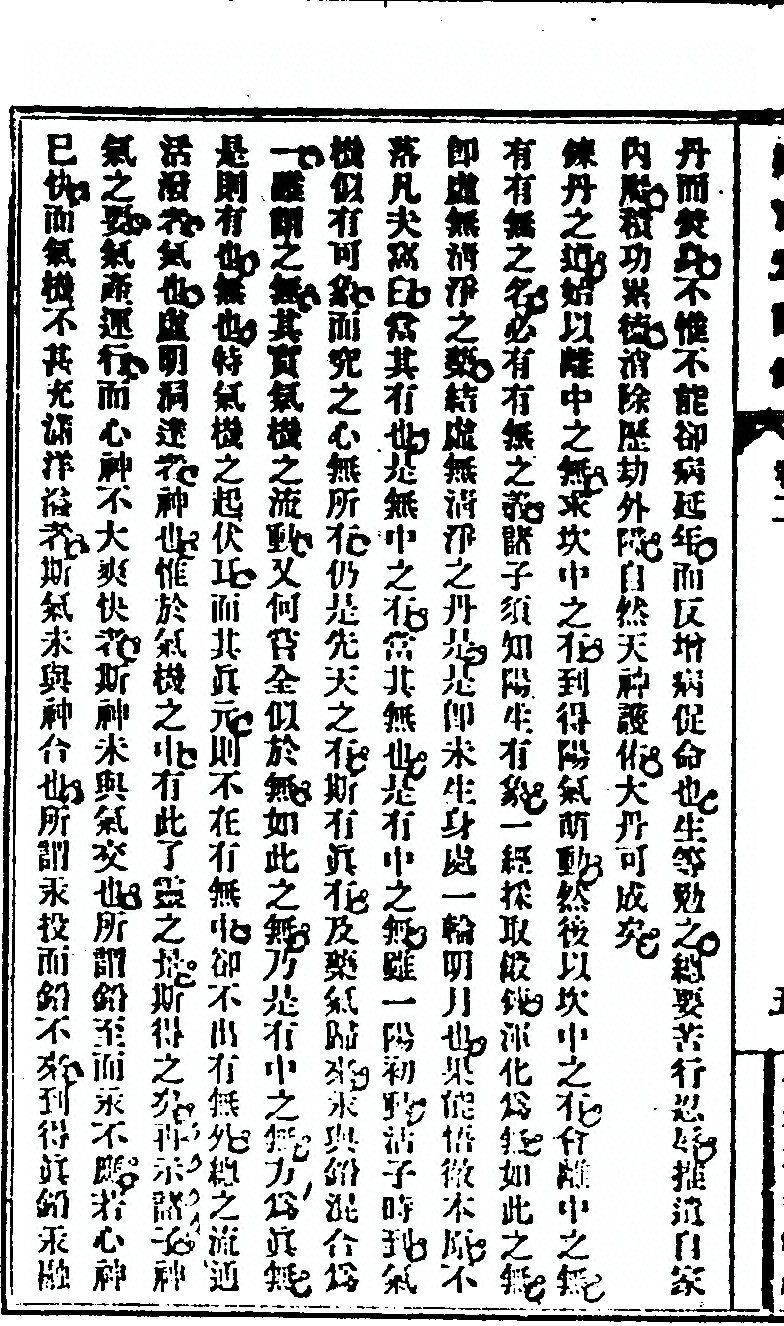 丹而焚身不惟不能卻病延年而反增病促命也生等勉之總要苦行忍辱推遣自家
內魔積功累德消除歷劫外障自然天神護佑大丹可成矣
鍊丹之道始以離中之無求坎中之有到得陽氣萌動然後以坎中之有會離中之無
有有無之名必有有無之義諸子須知陽生有象一經採取鍛鍊渾化為無如此之無
即虛無清淨之藥結虛無清淨之丹是是即未生身處一輪明月也果能悟徹本原不
落凡夫窩臼當其有也是無中之有當其無也是有中之無雖一陽初動活子時到氣
機似有可象而究之心無所有仍是先天之有斯有真有及藥氣歸來汞與鉛混合為
一雖謂之無其實氣機之流動又何嘗全似於無如此之無乃是有中之無方為真無
是則有也無也特氣機之起伏耳而其真元則不在有無中卻不出有無外總之流通
活潑者氣也虛明洞達者神也惟於氣機之中有此了靈之景斯得之矣再示諸子神
氣之要氣產運行而心神不大爽快者斯神未與氣交也所謂鉛至而汞不應若心神
已快而氣機不甚充滿洋溢者斯氣未與神合也所謂汞投而鉛不來到得真鉛汞融